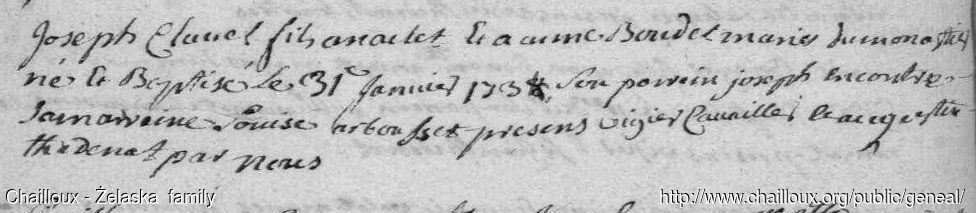 Joseph Clauel fils anaclet et a anne Boudel maries du monastier
né et Baptisé le 31e Janvier 1738 Son parrain joseph encontre
sa marraine Louise arbousset presens vigier Cavaillé et augustin
thedenat par nous
Chailloux - Żelaska family http://www.chailloux.org/public/geneal/